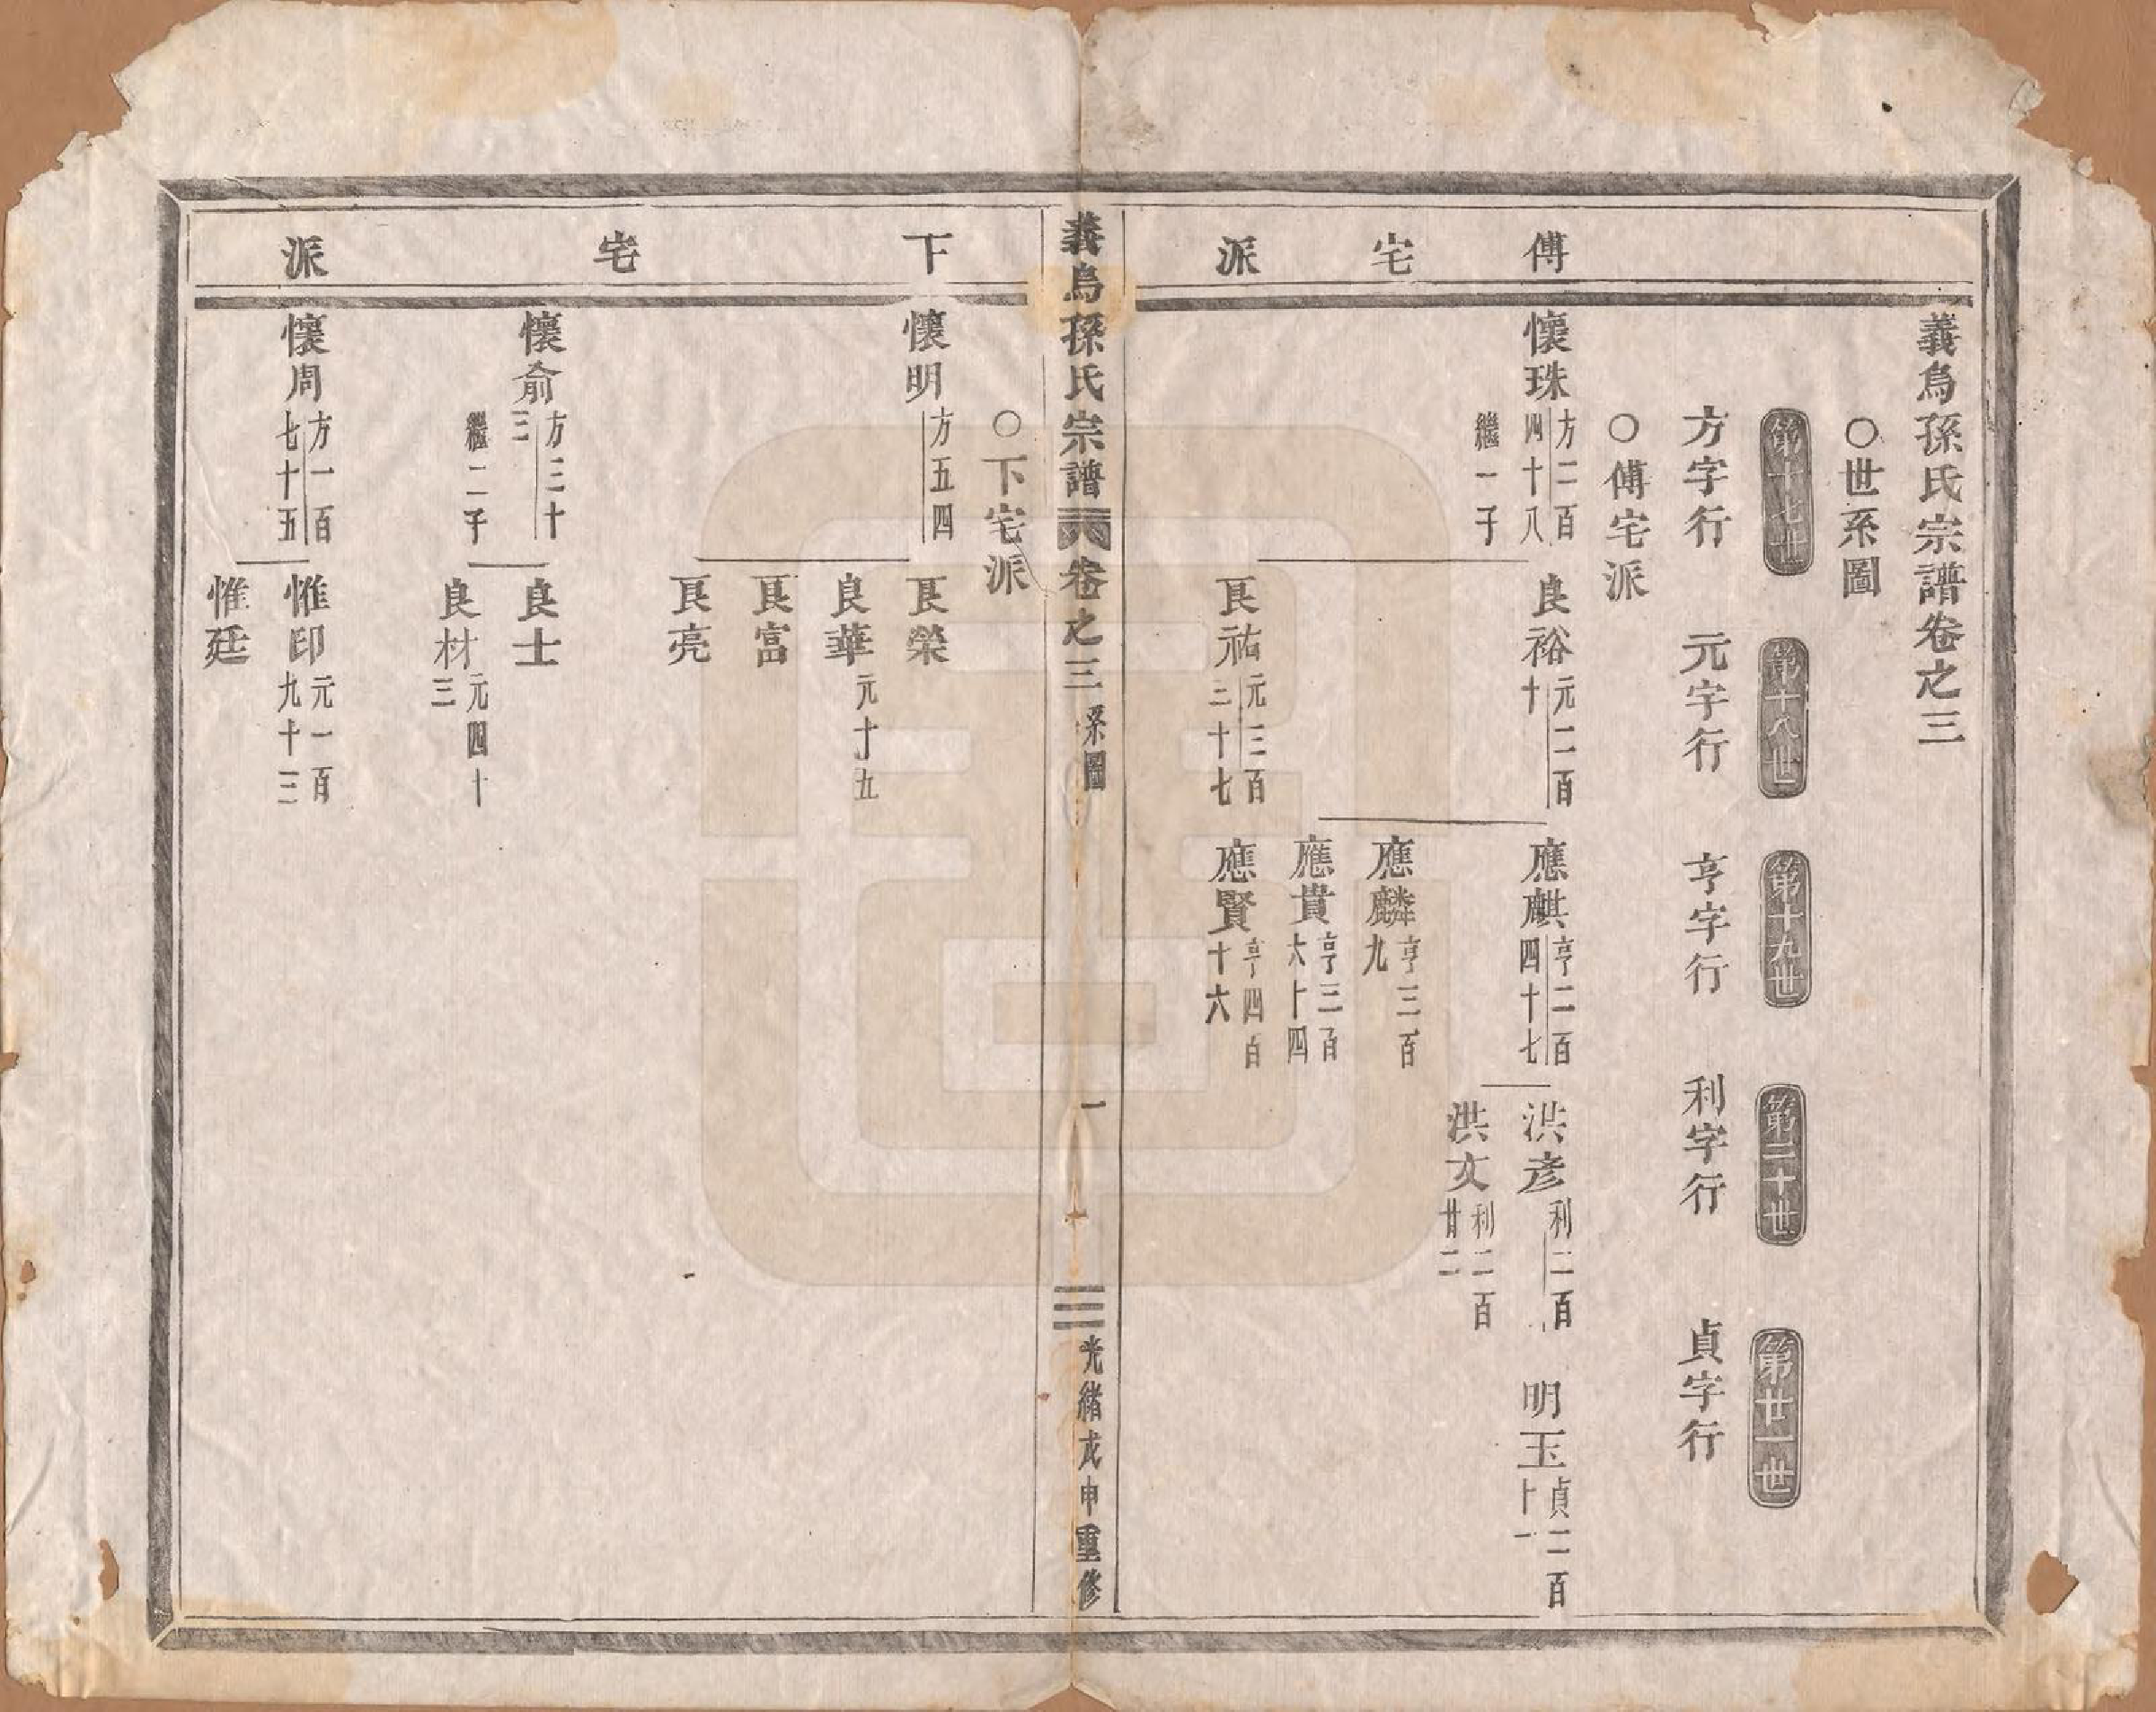 義烏孫氏宗譜卷之三
〇世系圖
第十七世
第十八世
第十九世
第二十世
第廿一世
方字行
元字行
亨字行
利字行
貞字行
〇傅宅派
傅宅派
懷珠 方二百四十八
繼一子
良裕 元二百十
良祐 元三百三十七
應麒 亨二百四十七
應麟 亨三百九
應貴 亨三百六十四
應賢 亨四百十六
洪彥 利二百
洪文 利二百廿二
明玉 貞二百十一
義烏孫氏宗譜 卷之三 系圖 一 光緒戊申重修
〇下宅派
下宅派
懷明 方五四
良榮
良華 元十五
良富
良亮
懷俞 方三十三
繼二子
良士
良材 元四十三
懷周 方一百七十五
惟印 元一百九十三
惟廷